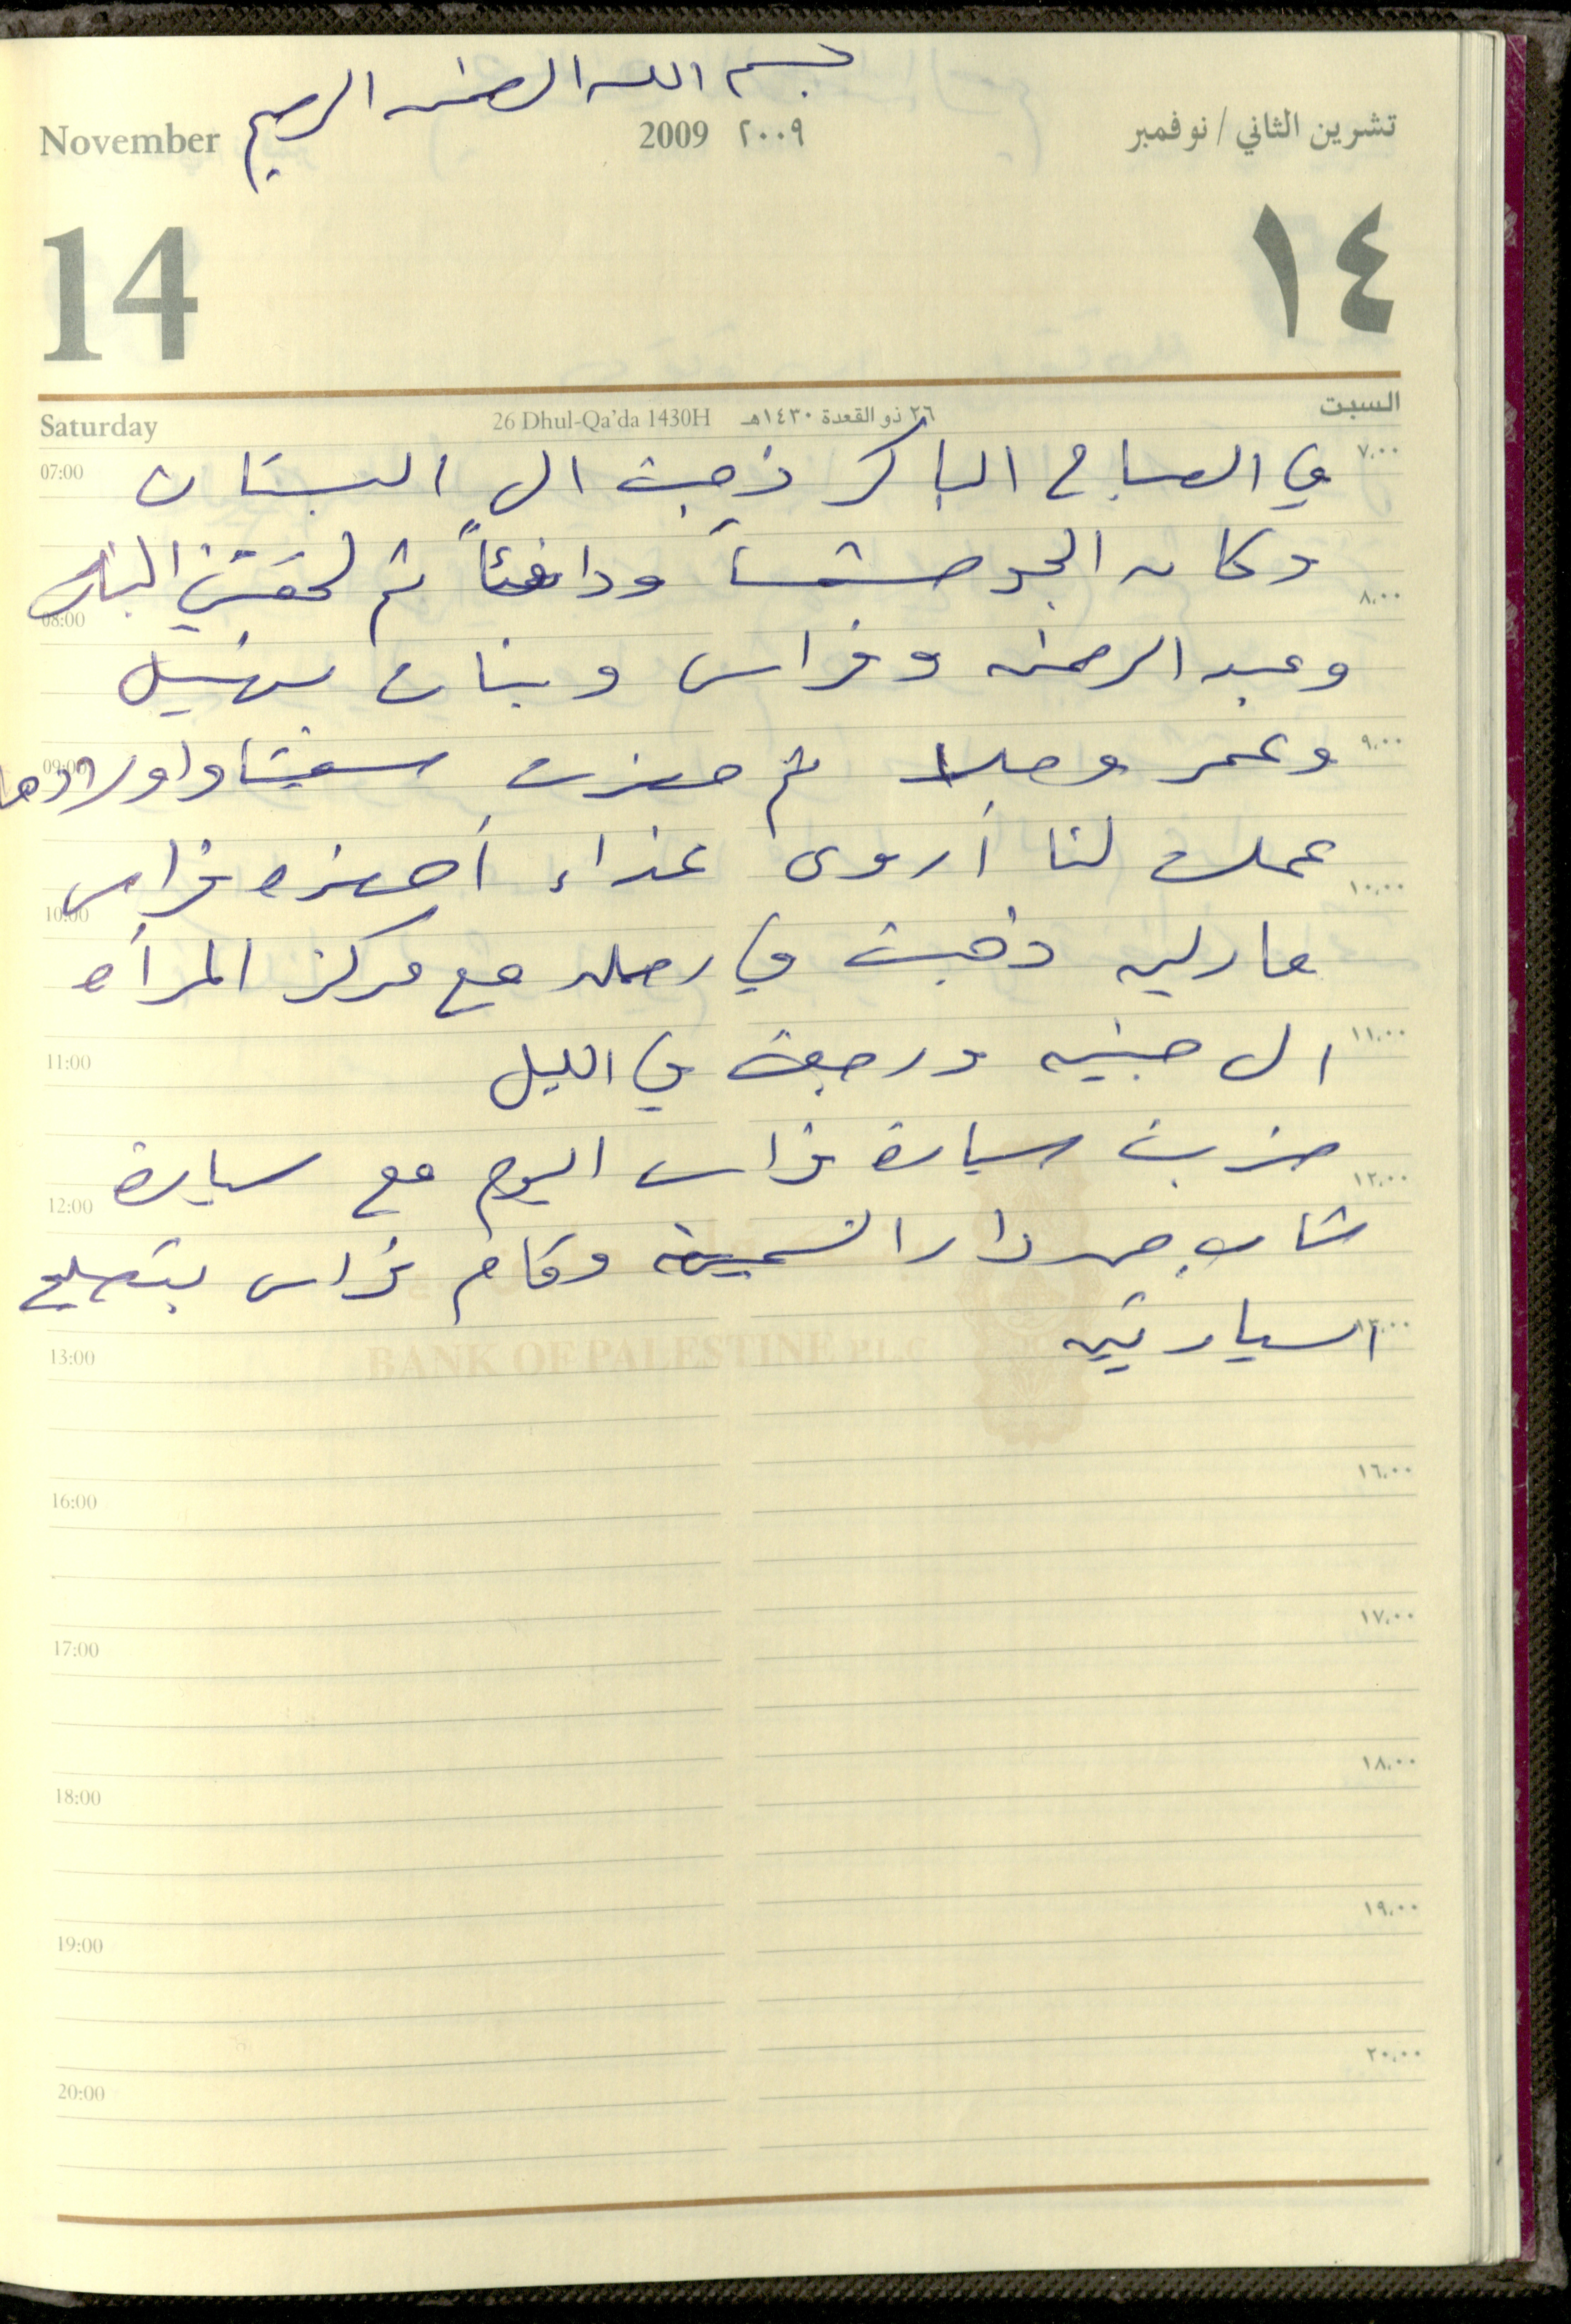 بسم الله الرحمن الرحيم
November 2009 ٢٠٠٩ تشرين الثاني / نوفمبر
14 ١٤
Saturday 26 Dhul-Qa'da 1430H ٢٦ ذو القعدة ١٤٣٠هـ السبت
07:00 في الصباح الباكر ذهبت الى البستان ٧,٠٠
وكان الجو مشمساً ودافئاً ثم لحقتني البنات
08:00 ٨,٠٠
وعبد الرحمن وفراس وبنات سهيل
09:00 وعمر وصلا ثم حضرت واولادها ٩,٠٠
عملت لنا أروى غذاء أحضره فراس
10:00 ١٠,٠٠
مارلين ذهبت في رحله مع مركز المرأه
11:00 الى جنين ورجعت في الليل ١١,٠٠
ضربت سيارة فراس اليوم مع سيارة
12:00 ١٢,٠٠
شاب من دار وقام فراس بتصليح
السيارتين
13:00 BANK OF PALESTINE P.L.C ١٣,٠٠
16:00 ١٦,٠٠
17:00 ١٧,٠٠
18:00 ١٨,٠٠
19:00 ١٩,٠٠
20:00 ٢٠,٠٠